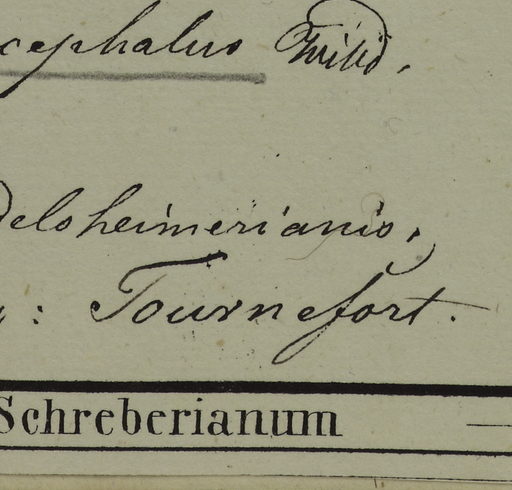 cephalus Willd.
delsheimerianis.
: Tournefort.
Schreberianum